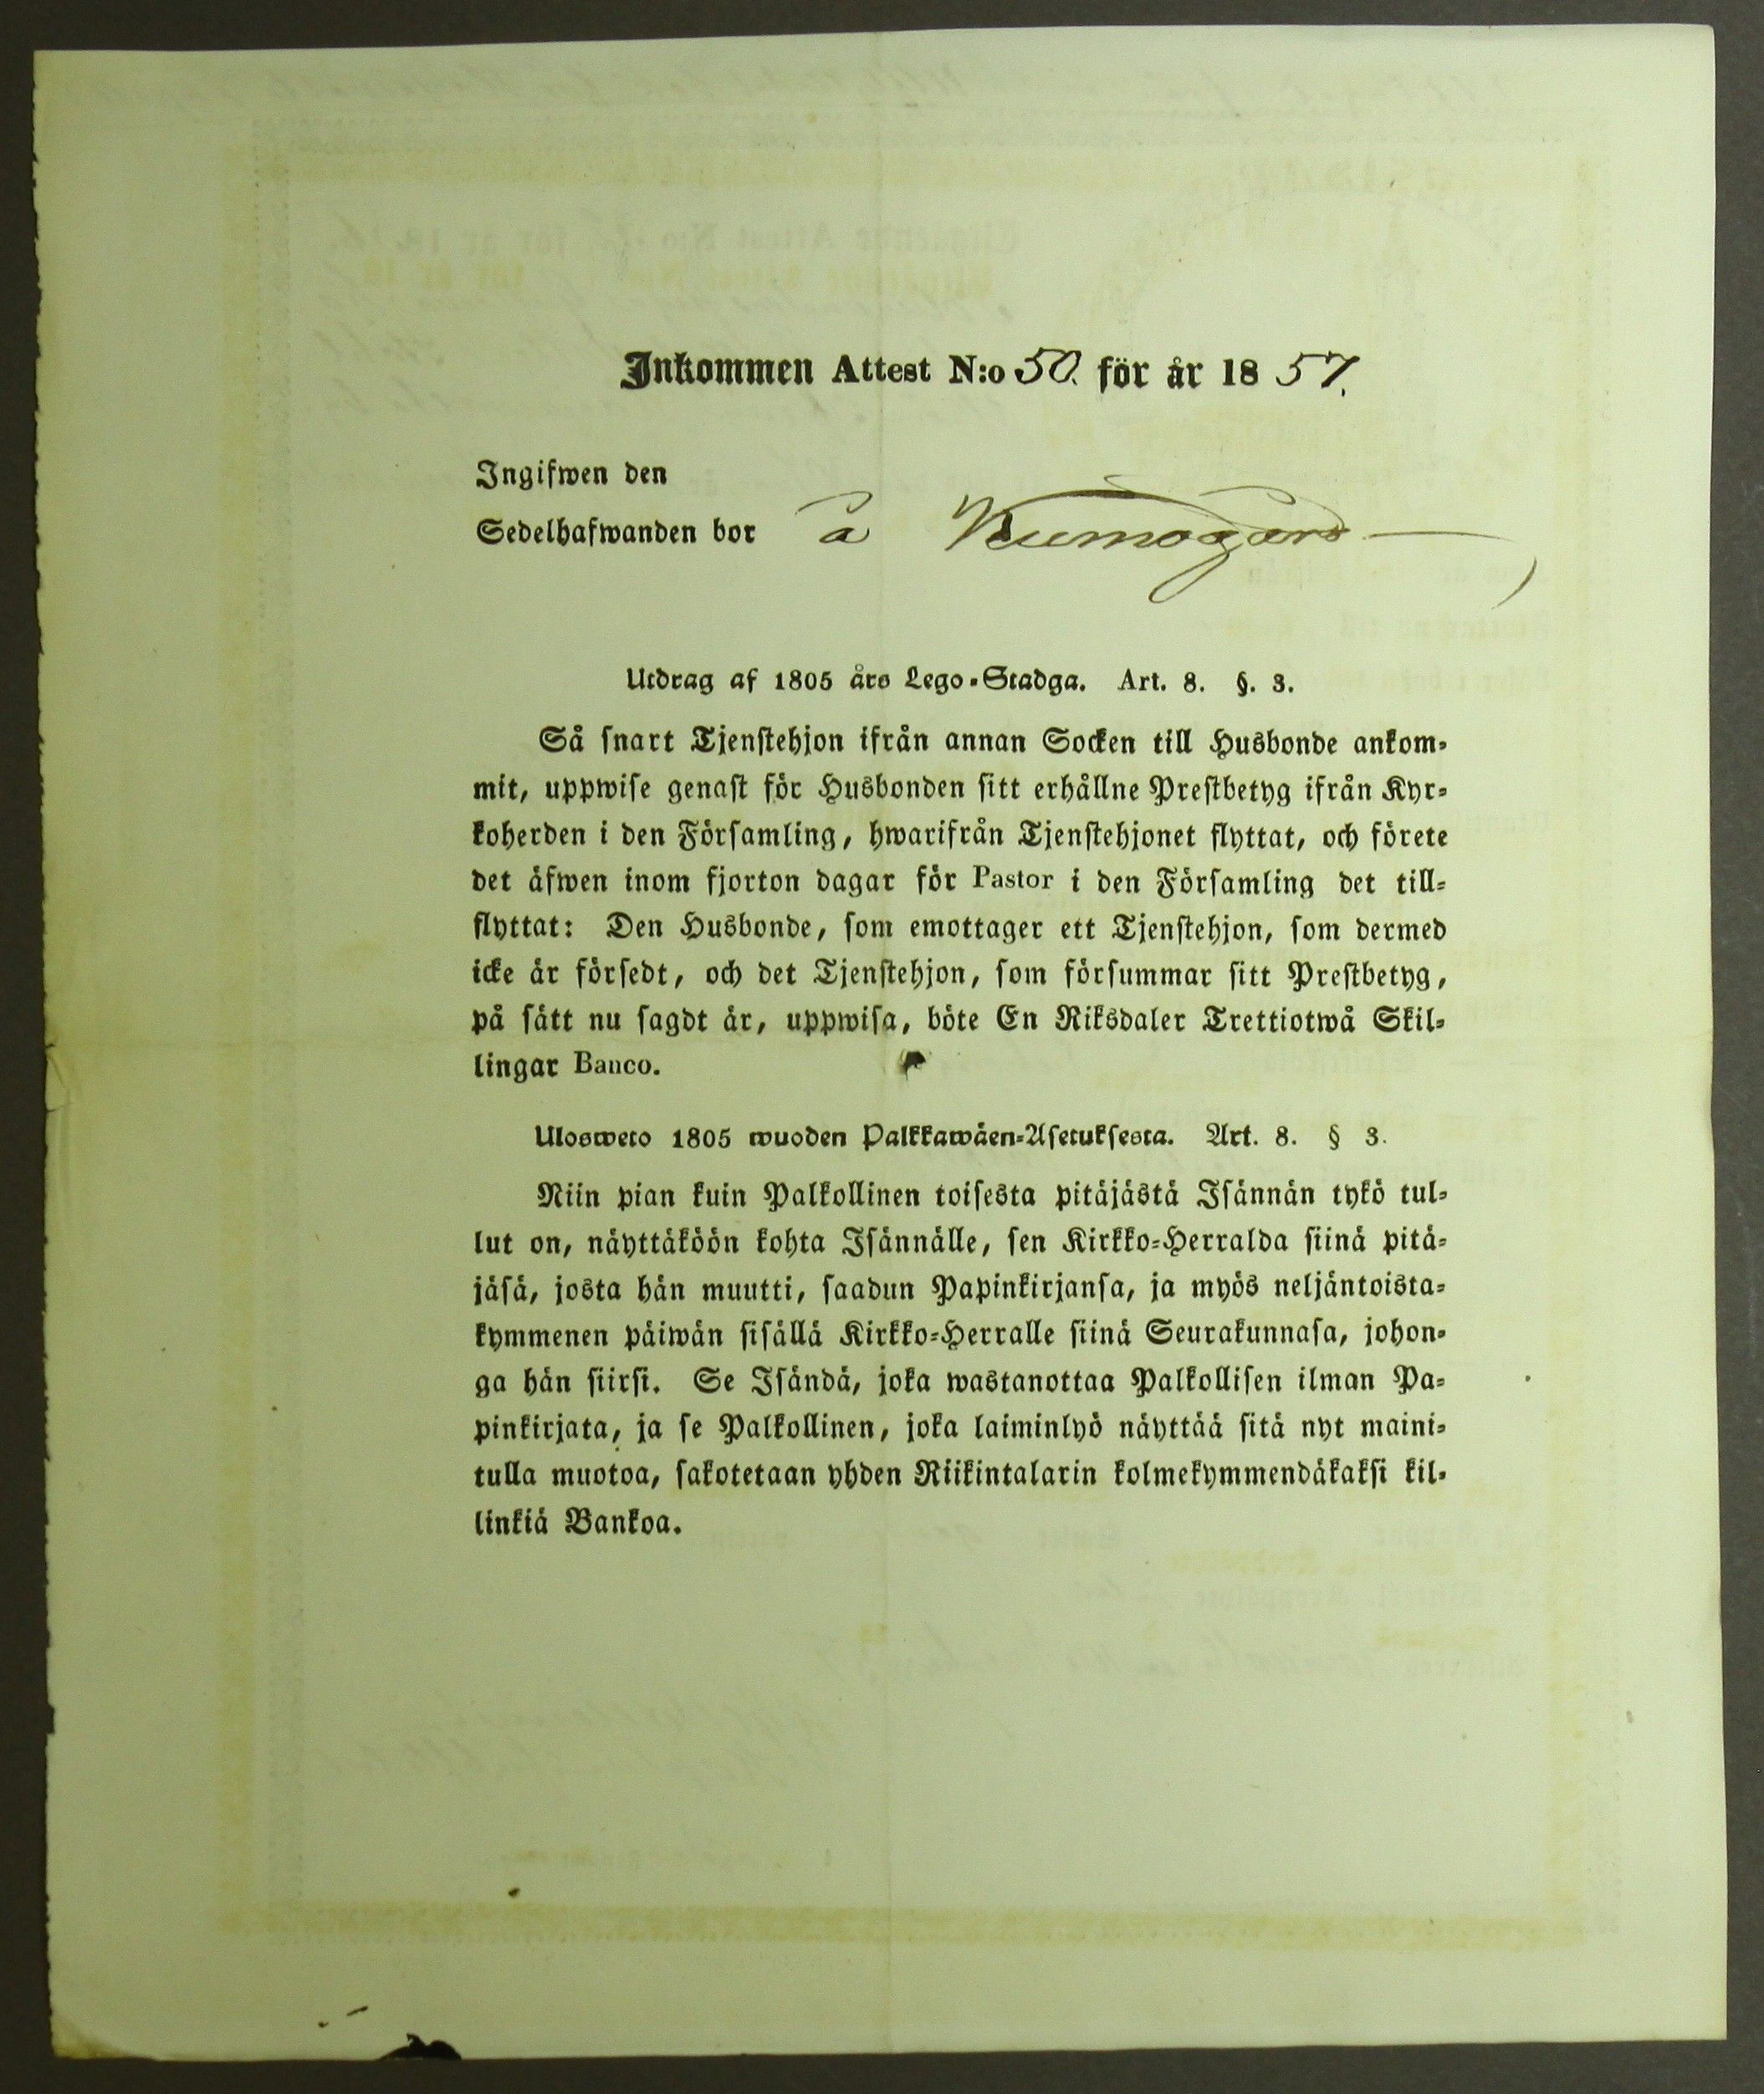 Inkommen Attest N:o 50. för år 1857.
Ingifwen den
Sedelhafwanden bor å Kumogård
Utdrag af 1805 års Lego-Stadga. Art. 8. §. 3.
Så snart Tjenstehjon ifrån annan Socken till Husbonde ankom-
mit, uppwise genast för Husbonden sitt erhållne Prestbetyg ifrån Kyr-
koherden i den Församling, hwarifrån Tjenstehjonet flyttat, och förete
det äfwen inom fjorton dagar för Pastor i den Församling det till-
flyttat: Den Husbonde, som emottager ett Tjenstehjon, som dermed
icke är försedt, och det Tjenstehjon, som försummar sitt Prestbetyg,
på sätt nu sagdt är, uppwisa, böte En Riksdaler Trettiotwå Skil-
lingar Banco.
Ulosweto 1805 wuoden Palkkawäen-Asetuksesta. Art. 8. § 3.
Niin pian kuin Palkollinen toisesta pitäjästä Isännän tykö tul-
lut on, näyttäköön kohta Isännälle, sen Kirkko-Herralda siinä pitä-
jäsä, josta hän muutti, saadun Papinkirjansa, ja myös neljäntoista-
kymmenen päiwän sisällä Kirkko-Herralle siinä Seurakunnasa, johon-
ga hän siirsi. Se Isändä, joka wastanottaa Palkollisen ilman Pa-
pinkirjata, ja se Palkollinen, joka laiminlyö näyttää sitä nyt maini-
tulla muotoa, sakotetaan yhden Riikintalarin kolmekymmendäkaksi kil-
linkiä Bankoa.